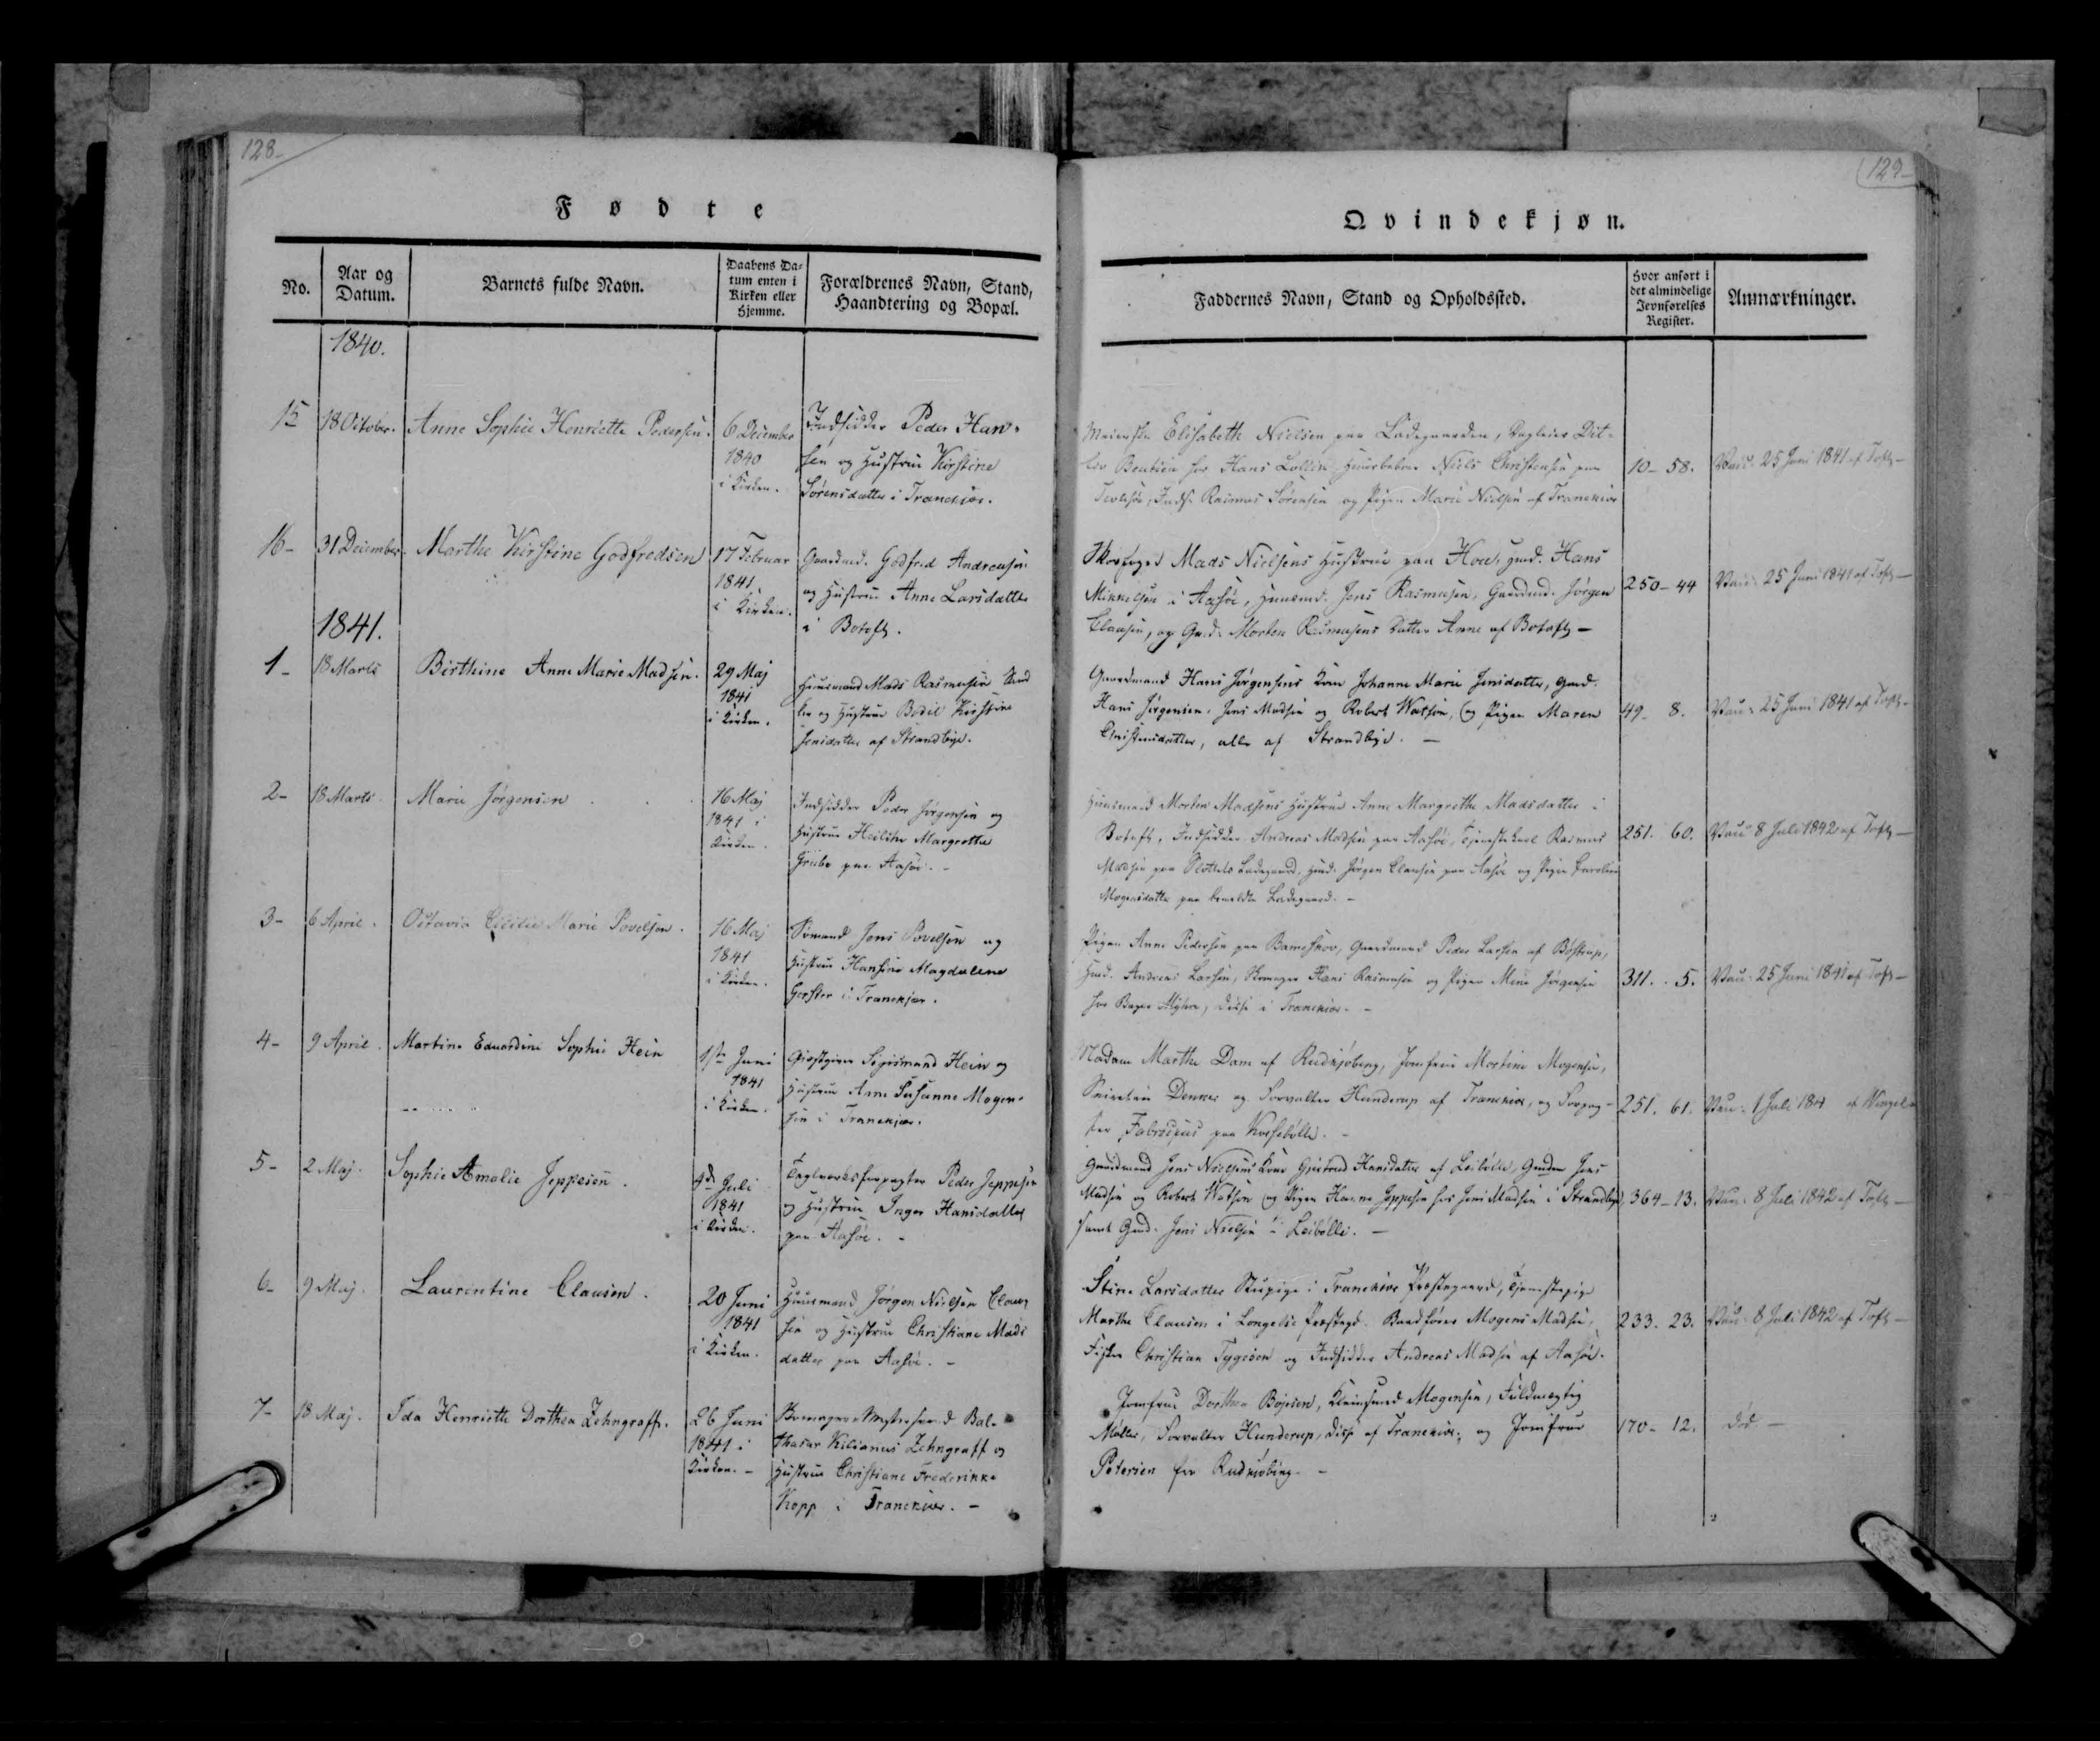 128-
Fødte
No.
Aar og
Datum.
Barnets fulde Navn.
Daabens Da-
tum enten i
Kirken eller
Hjemme.
Forældrenes Navn, Stand,
Haandtering og Bopæl.
1840.
15
18 October.
Anne Sophie Henriette Pedersen.
6 December
1840
i Kirken.
Indsidder Peder Han-
sen og Hustrue Kirstine
Sørensdatter i Tranekiær.
16-
31 December.
Marthe Kirstine Godfredsen
17 Februar
1841
i Kirken.
Gaardmd. Godfred Andreasen
og Hustrue Anne Larsdatter
i Botofte.
1841.
1-
18 Marts
Birthine Anne Marie Madsen.
29 Maj
1841
i Kirken.
Huusmand Mads Rasmusen
og Hustrue Bodil Kirstine
Jensdatter af Strandbye.
2-
18 Marts.
Marie Jørgensen
16 Maj
1841 i
Kirken.
Indsidder Peder Jørgensen og
Hustrue Margrethe
Grube paa Aasøe. -
3-
6 April.
Octavia Cicilie Marie Povelsen.
16 Maj
1841
i Kirken.
Sømand Jens Povelsen og
Hustrue Hansine Magdalene
Gerster i Tranekjær.
4-
9 April.
Martine Eduardine Sophie Hein
1ste Juni
1841
i Kirken.
Giæstgiver Sigismund Hein og
Hustrue Anne Susanne Mogen-
sen i Tranekjær.
5-
2 Maj.
Sophie Amalie Jeppesen.
Juli
1841
i Kirken.
Teglværksforpagter Peder Jeppesen
og Hustrue Inger Hansdatter
paa Aasøe. -
6-
9 Maj.
Laurentine Clausen.
20 Juni
1841
i Kirken.
Huusmand Jørgen Nielsen Clau-
sen og Hustrue Christiane Mads-
datter paa Aasøe. -
7-
18 Maj.
Ida Henriette Dorthea Zehngraff.
26 Juni
1841 i
Kirken. -
Skomager Bal-
thasar Kilianus Zehngraff og
Hustrue Christiane Frederikke
Kopp i Tranekiær. -
129-
Qvindekjøn.
Faddernes Navn, Stand og Opholdssted.
Hvor anført i
det almindelige
Jevnførelses
Register.
Anmærkninger.
Elisabeth Nielsen paa Ladegaarden, Dit-
lev Bentien Hans Niels Christensen paa
Inds. Rasmus Sørensen og Pigen Marie Nielsen af Tranekiær
10-58.
Vacc. 25 Juni 1841 af Toft-
Skovfoged Mads Nielsens Hustrue paa Hou, Hmd. Hans
Mikkelsen i Aasøe, Huusmd. Jens Rasmusen, Gaardmd. Jørgen
Clausen, og Gmd. Morten Rasmusens Datter Anne af Botofte -
250-44
Vacc. 25 Juni 1841 af Toft-
Gaardmand Hans Jørgensens Kone Johanne Marie Jensdatter, Gmd.
Hans Jørgensen, Jens Madsen og Robert Watson, og Pigen Maren
Christensdatter, alle af Strandbye. -
49- 8.
Vacc. 25 Juni 1841 af Toft-
Huusmand Morten Madsens Hustrue Anne Margrethe Madsdatter i
Botofte, Indsidder Andreas Madsen paa Aasøe, Tjenestekarl Rasmus
Madsen paa Slottets Ladegaard, Hmd. Jørgen Clausen paa Aasøe og Pigen Caroline
Mogensdatter paa bemeldte Ladegaard. -
251. 60.
Vacc. 8 Juli 1842 af Toft-
Pigen Anne Pedersen paa Bameskov, Gaardmand Peder Larsen af Bøstrup,
Hmd. Andreas Larsen, Skomager Hans Rasmusen og Pigen Mine Jørgensen
hos Bager disse i Tranekiær. -
311. 5.
Vacc. 25 Juni 1841 af Toft-
Madam Marthe Dam af Rudkjøbing, Jomfrue Martine Mogensen,
Denker og Forvalter Hunderup af Tranekiær, og Forpag-
ter Fabricius paa Korsebølle. -
251. 61.
Vacc. 1 Juli 184 af
Gaardmand Jens Nielsens Kone Gjertrud Hansdatter af Leibølle, Gmden Jens
Madsen og Robert Watson og Pigen Jeppesen hos Jens Madsen i Strandbye
samt Gmd. Jens Nielsen i Leibølle. -
364-13.
Vacc. 8 Juli 1842 af Toft-
Stine Larsdatter Stupige i Tranekiær Præstegaard, Tjenestepige
Marthe Clausen i Longelse Præstegd. Mogens Madsen,
Fisker Christian Tygesen og Indsidder Andreas Madsen af Aasøe.
233. 23.
Vacc. 8 Juli 1842 af Toft-
Jomfrue Dorthea Bojesen, Mogensen, Fuldmægtig
Møller, Forvalter Hunderup, disse af Tranekiær, og Jomfrue
Petersen fra Rudkiøbing. -
170- 12.
død -